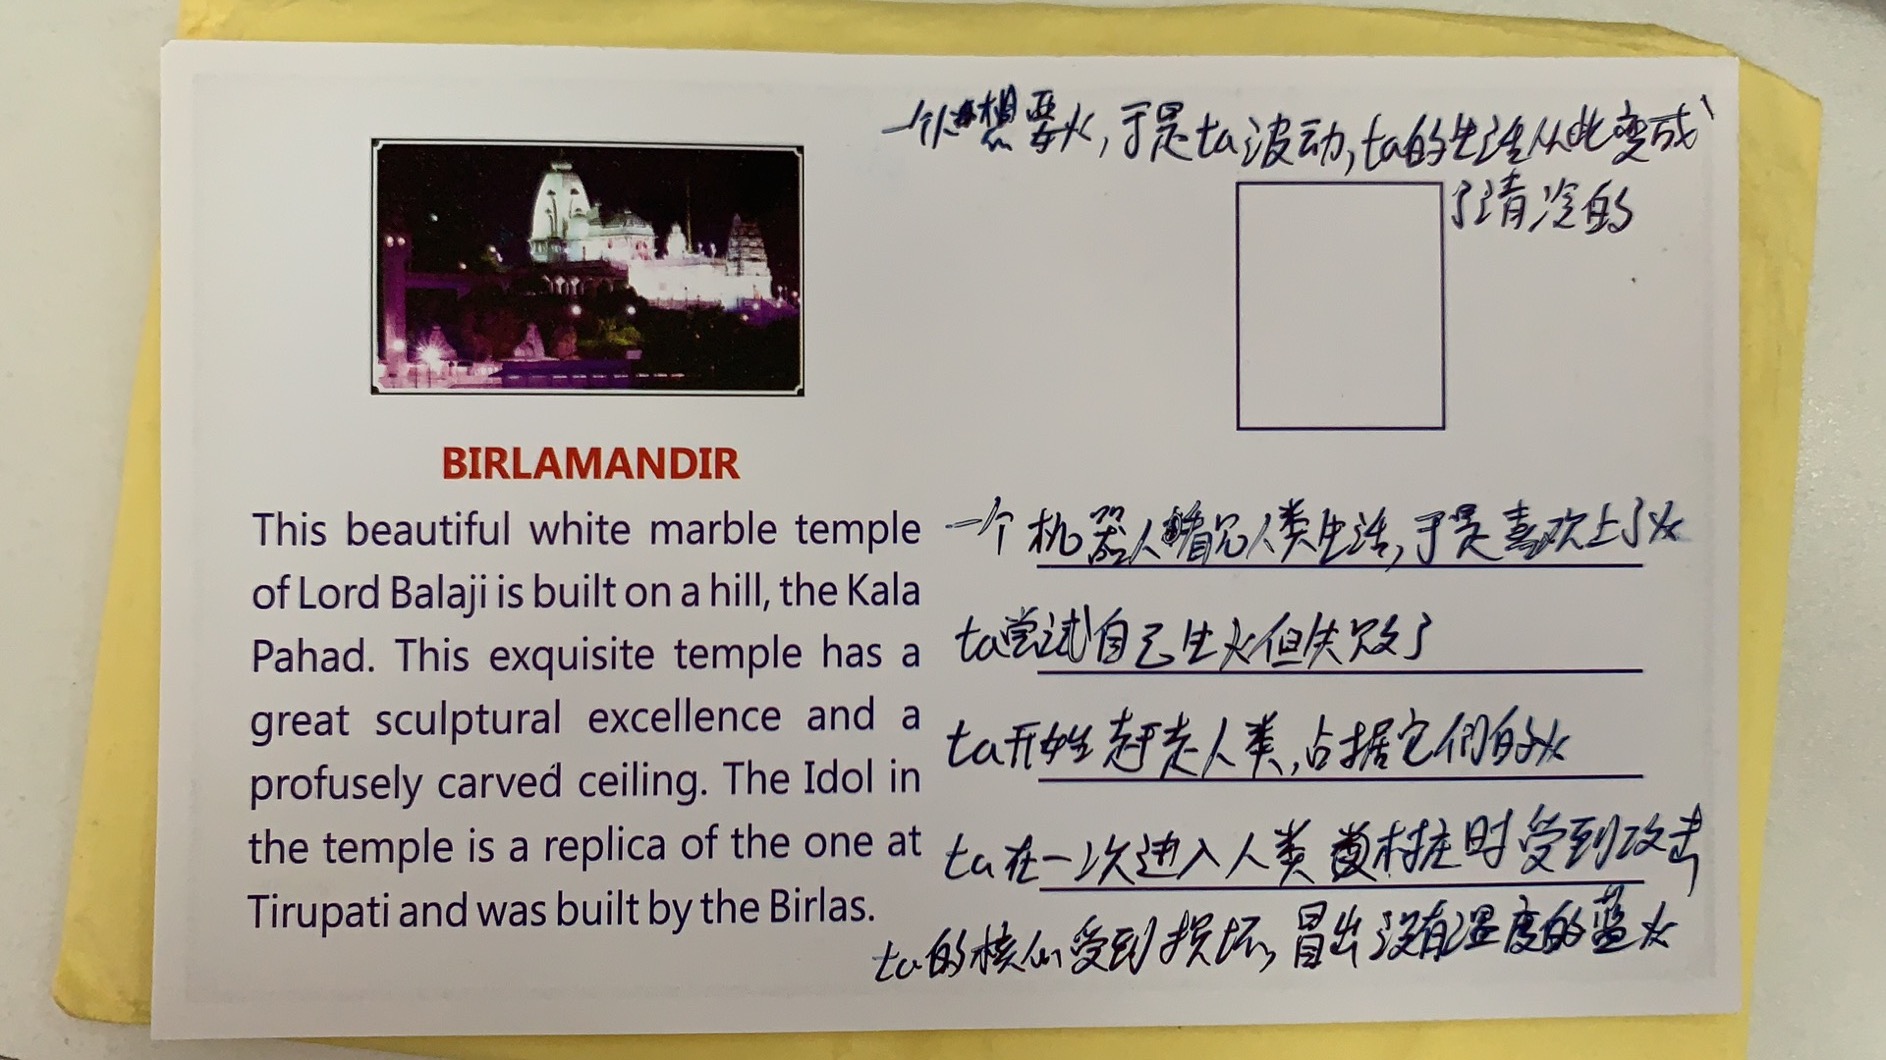 一个人想要火，于是ta波动，ta的生活从此变成
了清冷的
BIRLAMANDIR
This beautiful white marble temple
of Lord Balaji is built on a hill, the Kala
Pahad. This exquisite temple has a
great sculptural excellence and a
profusely carved ceiling. The Idol in
the temple is a replica of the one at
Tirupati and was built by the Birlas.
一个机器人看见人类生活，于是喜欢上了火
ta尝试自己生火但失败了
ta开始赶走人类，占据它们的火
ta在一次进入人类村庄时受到攻击
ta的核心受到损坏，冒出没有温度的蓝火